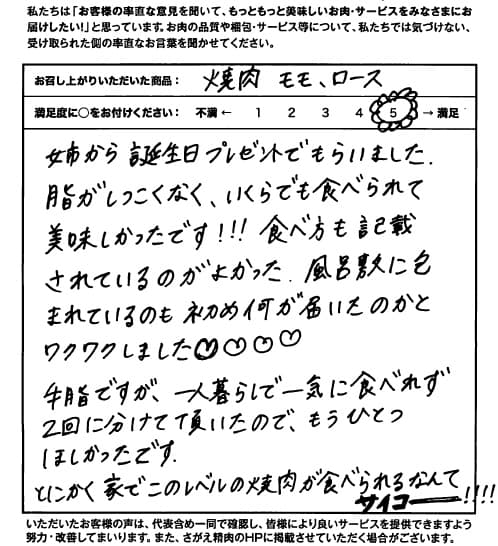 私たちは「お客様の率直な意見を聞いて、もっともっと美味しいお肉・サービスをみなさまにお
届けしたい!」と思っています。お肉の品質や梱包・サービス等について、私たちでは気づけない、
受け取られた側の率直なお言葉を聞かせてください。
お召し上がりいただいた商品: 焼肉 モモ、ロース
満足度に○をお付けください: 不満 ← 1 2 3 4 5 → 満足
姉から誕生日プレゼントでもらいました.
脂がしつこくなく、いくらでも食べられて
美味しかったです!!! 食べ方も記載
されているのがよかった. 風呂敷に包
まれているのも初め何が届いたのかと
ワクワクしました♡♡♡♡
牛脂ですが、一人暮らしで一気に食べれず
2回に分けて頂いたので、もうひとつ
ほしかったです.
とにかく家でこのレベルの焼肉が食べられるなんて
サイコー!!!!
いただいたお客様の声は、代表含め一同で確認し、皆様により良いサービスを提供できますよう
努力・改善してまいります。また、さがえ精肉のHPに掲載させていただく場合がございます。